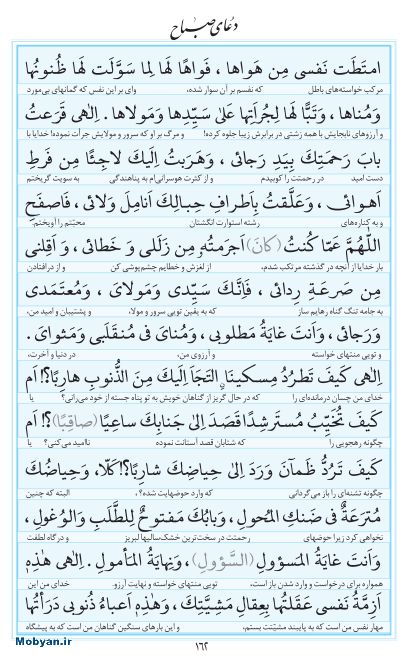 دعای صباح
امتَطَت نَفسی مِن هَواها ، فَواهًا لَها لِما سَوَّلَت لَها ظُنونُها
مرکب خواسته‌های باطل که نفسم بر آن سوار شده، وای بر این نفس که گمانهای بی‌مورد
وَمُناها ، وَتَبًّا لَها لِجُرأَتِها عَلیٰ سَیِّدِها وَمَولاها . اِلٰهی قَرَعتُ
و آرزوهای نابجایش با همه زشتی در برابرش زیبا جلوه کرده! و مرگ بر او که سرور و مولایش جرأت نموده! خدایا با
بابَ رَحمَتِکَ بِیَدِ رَجائی ، وَهَرَبتُ اِلَیکَ لاجِئًا مِن فَرطِ
دست امید در رحمتت را کوبیدم و از کثرت هوسرانی‌ام به پناهندگی به سویت گریختم
اَهوائی ، وَعَلَّقتُ بِاَطرافِ حِبالِکَ اَنامِلَ وَلائی ، فَاصفَحِ
و به کناره‌های رشته استوارت انگشتان محبّتم را آویختم.
اللّٰهُمَّ عَمّا کُنتُ (کانَ) اَجرَمتُهٗ مِن زَلَلی وَ خَطائی ، وَ اَقِلنی
بار خدایا از آنچه در گذشته مرتکب شدم، از لغزش و خطایم چشم‌پوشی کن و از درافتادن
مِن صَرعَةِ رِدائی ، فَاِنَّکَ سَیِّدی وَمَولایَ ، وَمُعتَمَدی
به جامه تنگ گناه رهایم ساز که به یقین تویی سرور و مولا، و پشتیبان و امید من،
وَرَجائی ، وَاَنتَ غایَةُ مَطلوبی ، وَمُنایَ فی مُنقَلَبی وَمَثوایَ .
و تویی منتهای خواسته و آرزوی من، در دنیا و آخرت،
اِلٰهی کَیفَ تَطرُدُ مِسکینًا التَجَأَ اِلَیکَ مِنَ الذُّنوبِ هارِبًا؟! اَم
خدای من چسان درمانده‌ای را که در حال گریز از گناهان خویش به تو پناه جسته از خود می‌رانی؟ یا
کَیفَ تُخَیِّبُ مُستَرشِدًا قَصَدَ اِلیٰ جَنابِکَ ساعِیًا (صاقِبًا)؟! اَم
چگونه رهجویی را که شتابان قصد آستانت نموده ناامید می‌کنی؟ یا
کَیفَ تَرُدُّ ظَمآنَ وَرَدَ اِلیٰ حِیاضِکَ شارِبًا؟! کَلّا، وَحِیاضُکَ
چگونه تشنه‌ای را باز می‌گردانی که وارد حوضهایت شده؟، البته که چنین
مُترَعَةٌ فی ضَنکِ المُحولِ، وَبابُکَ مَفتوحٌ لِلطَّلَبِ وَالوُغولِ ،
نخواهی کرد زیرا حوضهای رحمتت در سخت‌ترین خشکسالیها لبریز و در گاه لطفت
وَاَنتَ غایَةُ المَسؤولِ (السَّؤولِ) ، وَنِهایَةُ المَأمولِ . اِلٰهی هٰذِهٖ
همواره برای درخواست و وارد شدن باز است، تویی منتهای خواسته و نهایت آرزو. خدای من این
اَزِمَّةُ نَفسی عَقَلتُها بِعِقالِ مَشِیَّتِکَ، وَهٰذِهٖ اَعباءُ ذُنوبی دَرَأتُها
مهار نفس من است که به پایبند مشیّتت بستم، و این بارهای سنگین گناهان من است که به پیشگاه
Mobyan.ir
۱۶۲